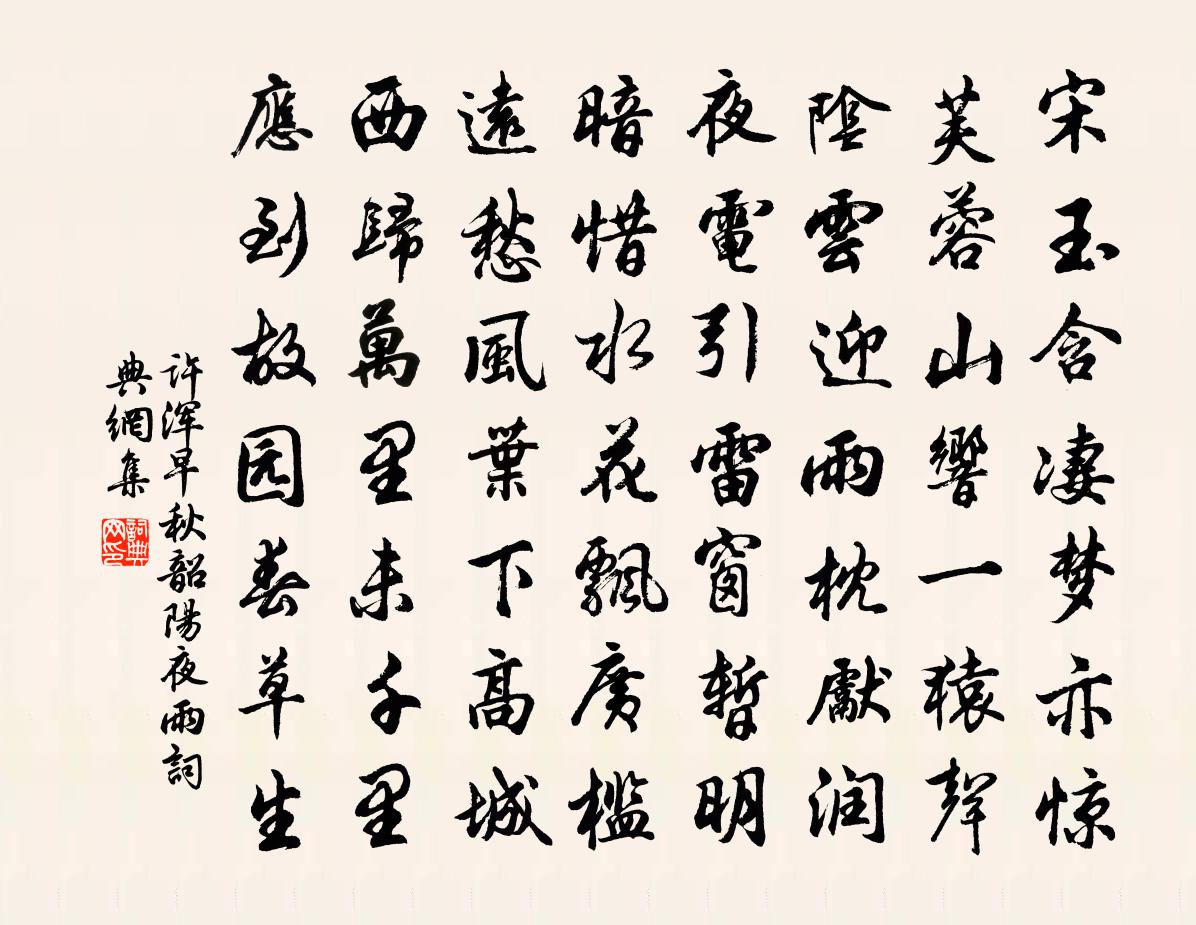 宋玉含凄梦亦惊
芙蓉山響一猿聲
陰雲迎雨枕獻润
夜電引雷窗暫明
暗惜水花飄廣檻
遠愁風葉下高城
西歸萬里未千里
應到故园春草生
许浑早秋韶陽夜雨詞
典網集
詞典網印